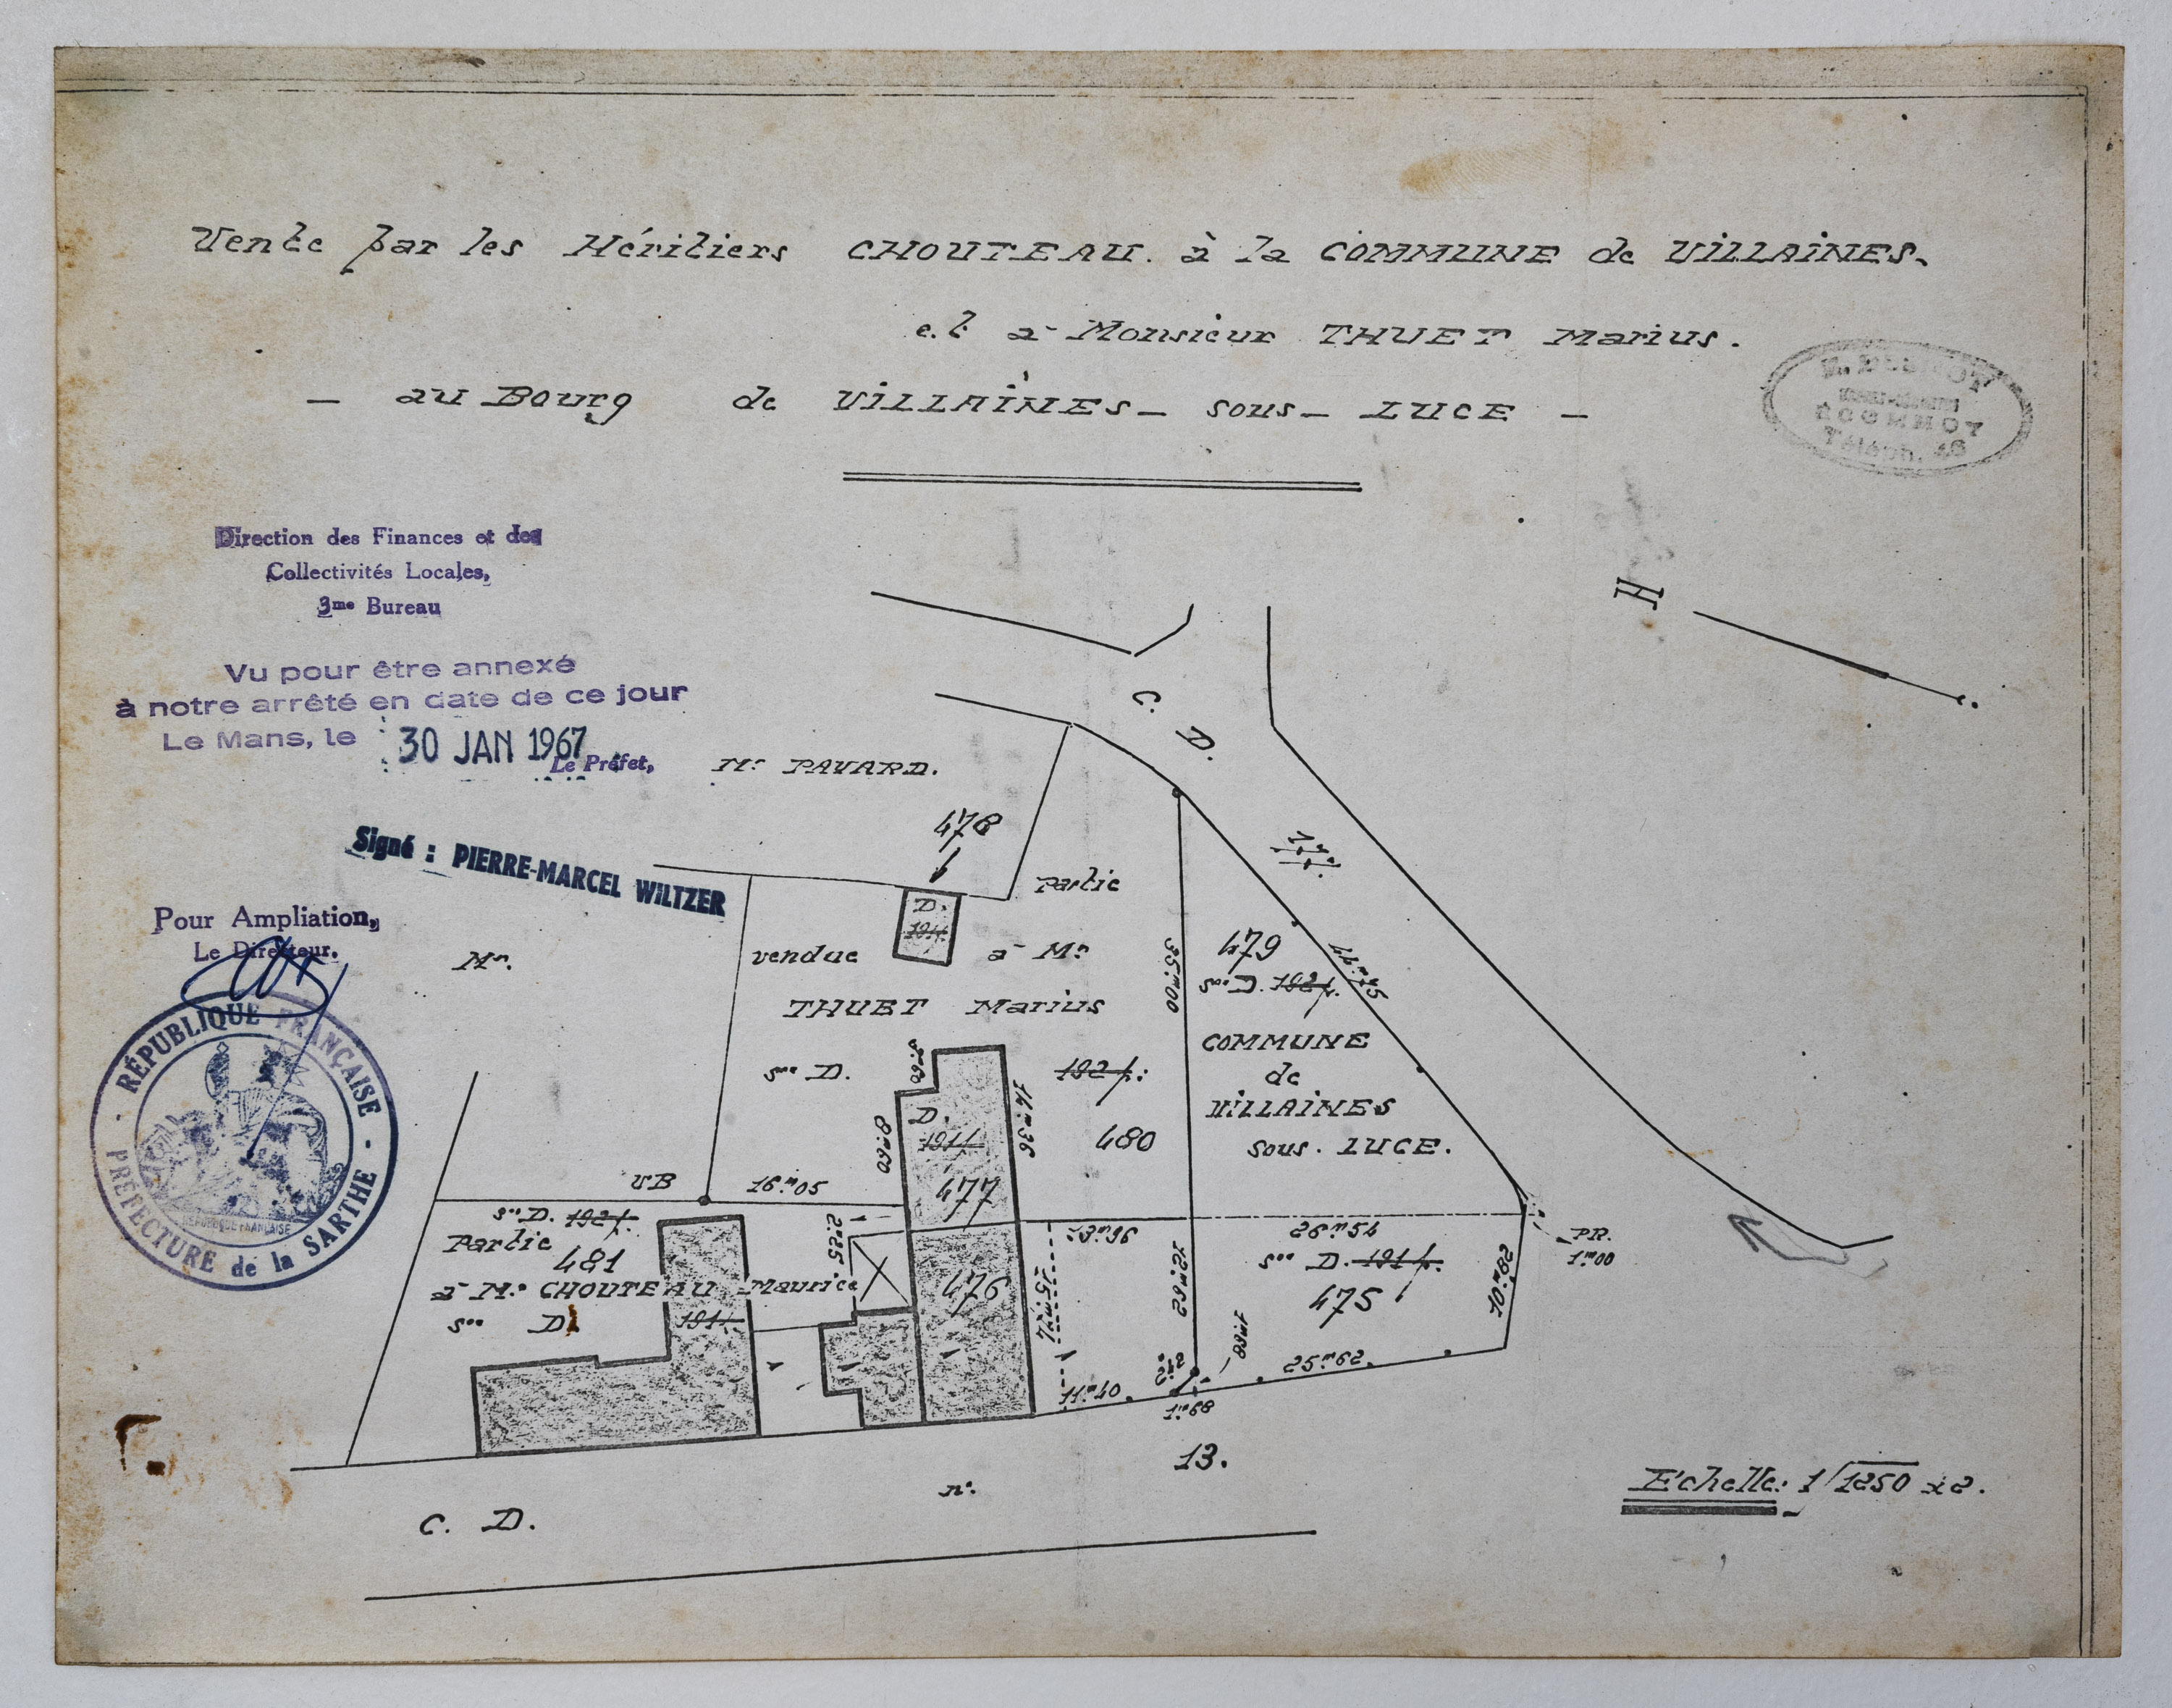 Vente par les Héritiers CHOUTEAU. à la COMMUNE de VILLAINES.
et à Monsieur THUET Marius.
_ au Bourg de VILLAINES _ sous _ LUCE _
ÉCOMMOY
Téléph. 46
Direction des Finances et des
Collectivités Locales,
3me Bureau
Vu pour être annexé
à notre arrêté en date de ce jour
Le Mans, le 30 JAN 1967
Le Préfet,
Signé : PIERRE-MARCEL WILTZER
Pour Ampliation,
Le Directeur.
RÉPUBLIQUE FRANÇAISE
PRÉFECTURE de la SARTHE
Mr PAVARD.
C. D.
478
Partie
D.
191p.
Mr.
vendue à Mr
THUET Marius
son D. 192p.
35m00
479
son D. 192p.
44m45
COMMUNE
de
VILLAINES
sous. LUCE.
8m60
D.
191p.
14m36
480
477
VB
16m05
son D. 192p.
Partie
481
à Mr CHOUTEAU Maurice
son D.
191p.
2m25
476
13m96
26m54
son D. 191p.
475
PR.
1m00
10m82
22m62
25m62.
11m40
1m98
C. D. n° 13.
Echelle: 1/1250 x2.